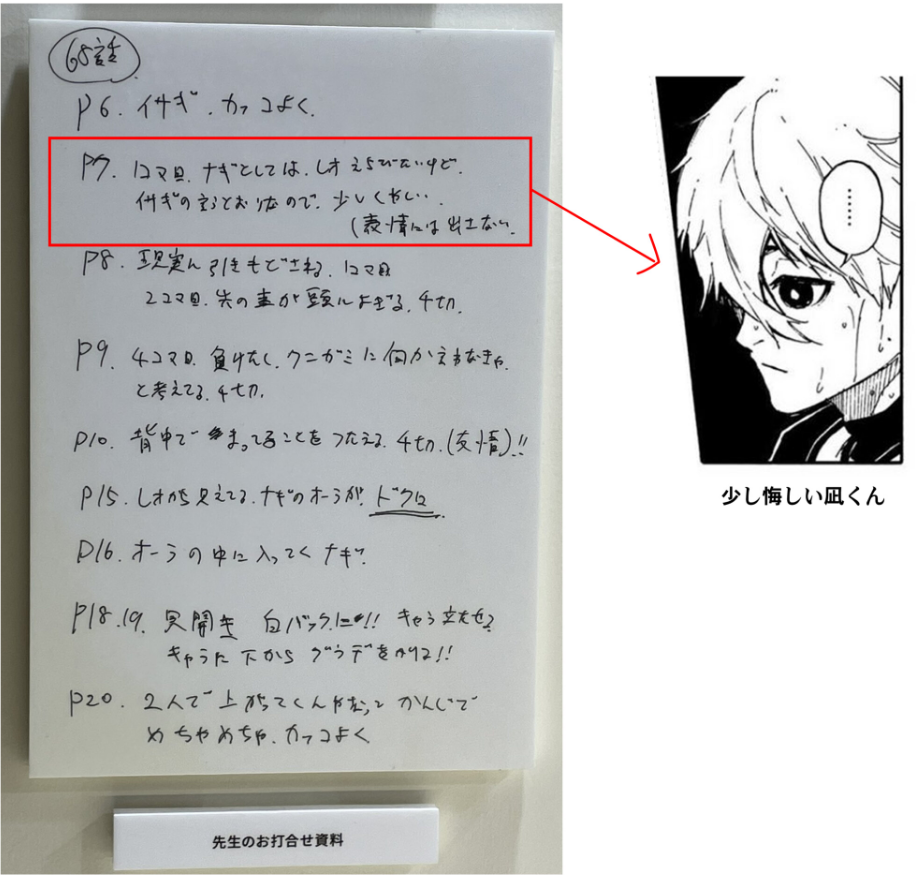 68話
P6. イサギ. カッコよく.
P7. 1コマ目. ナギとしては. レオえらびたいけど.
イサギの言うとおりなので. 少しくやしい.
(表情には出さない.
P8. 現実に引きもどされる. 1コマ目
2コマ目. 失の重が頭によぎる. 千切.
P9. 4コマ目. 負けたくし. クニガミに何か言わなきゃ.
と考えてる. 千切.
P10. 背中で まってることをつたえる. 千切. (友情)!!
P15. レオから見えてる. ナギのオーラが. ドクロ
P16. オーラの中に入ってくナギ.
P18.19. 見開き 白バックに!! キャラ立たせる
キャラに下からグラデをかける!!
P20. 2人で上がってくんやなってかんじで
めちゃめちゃ. カッコよく
先生のお打合せ資料
……
少し悔しい凪くん